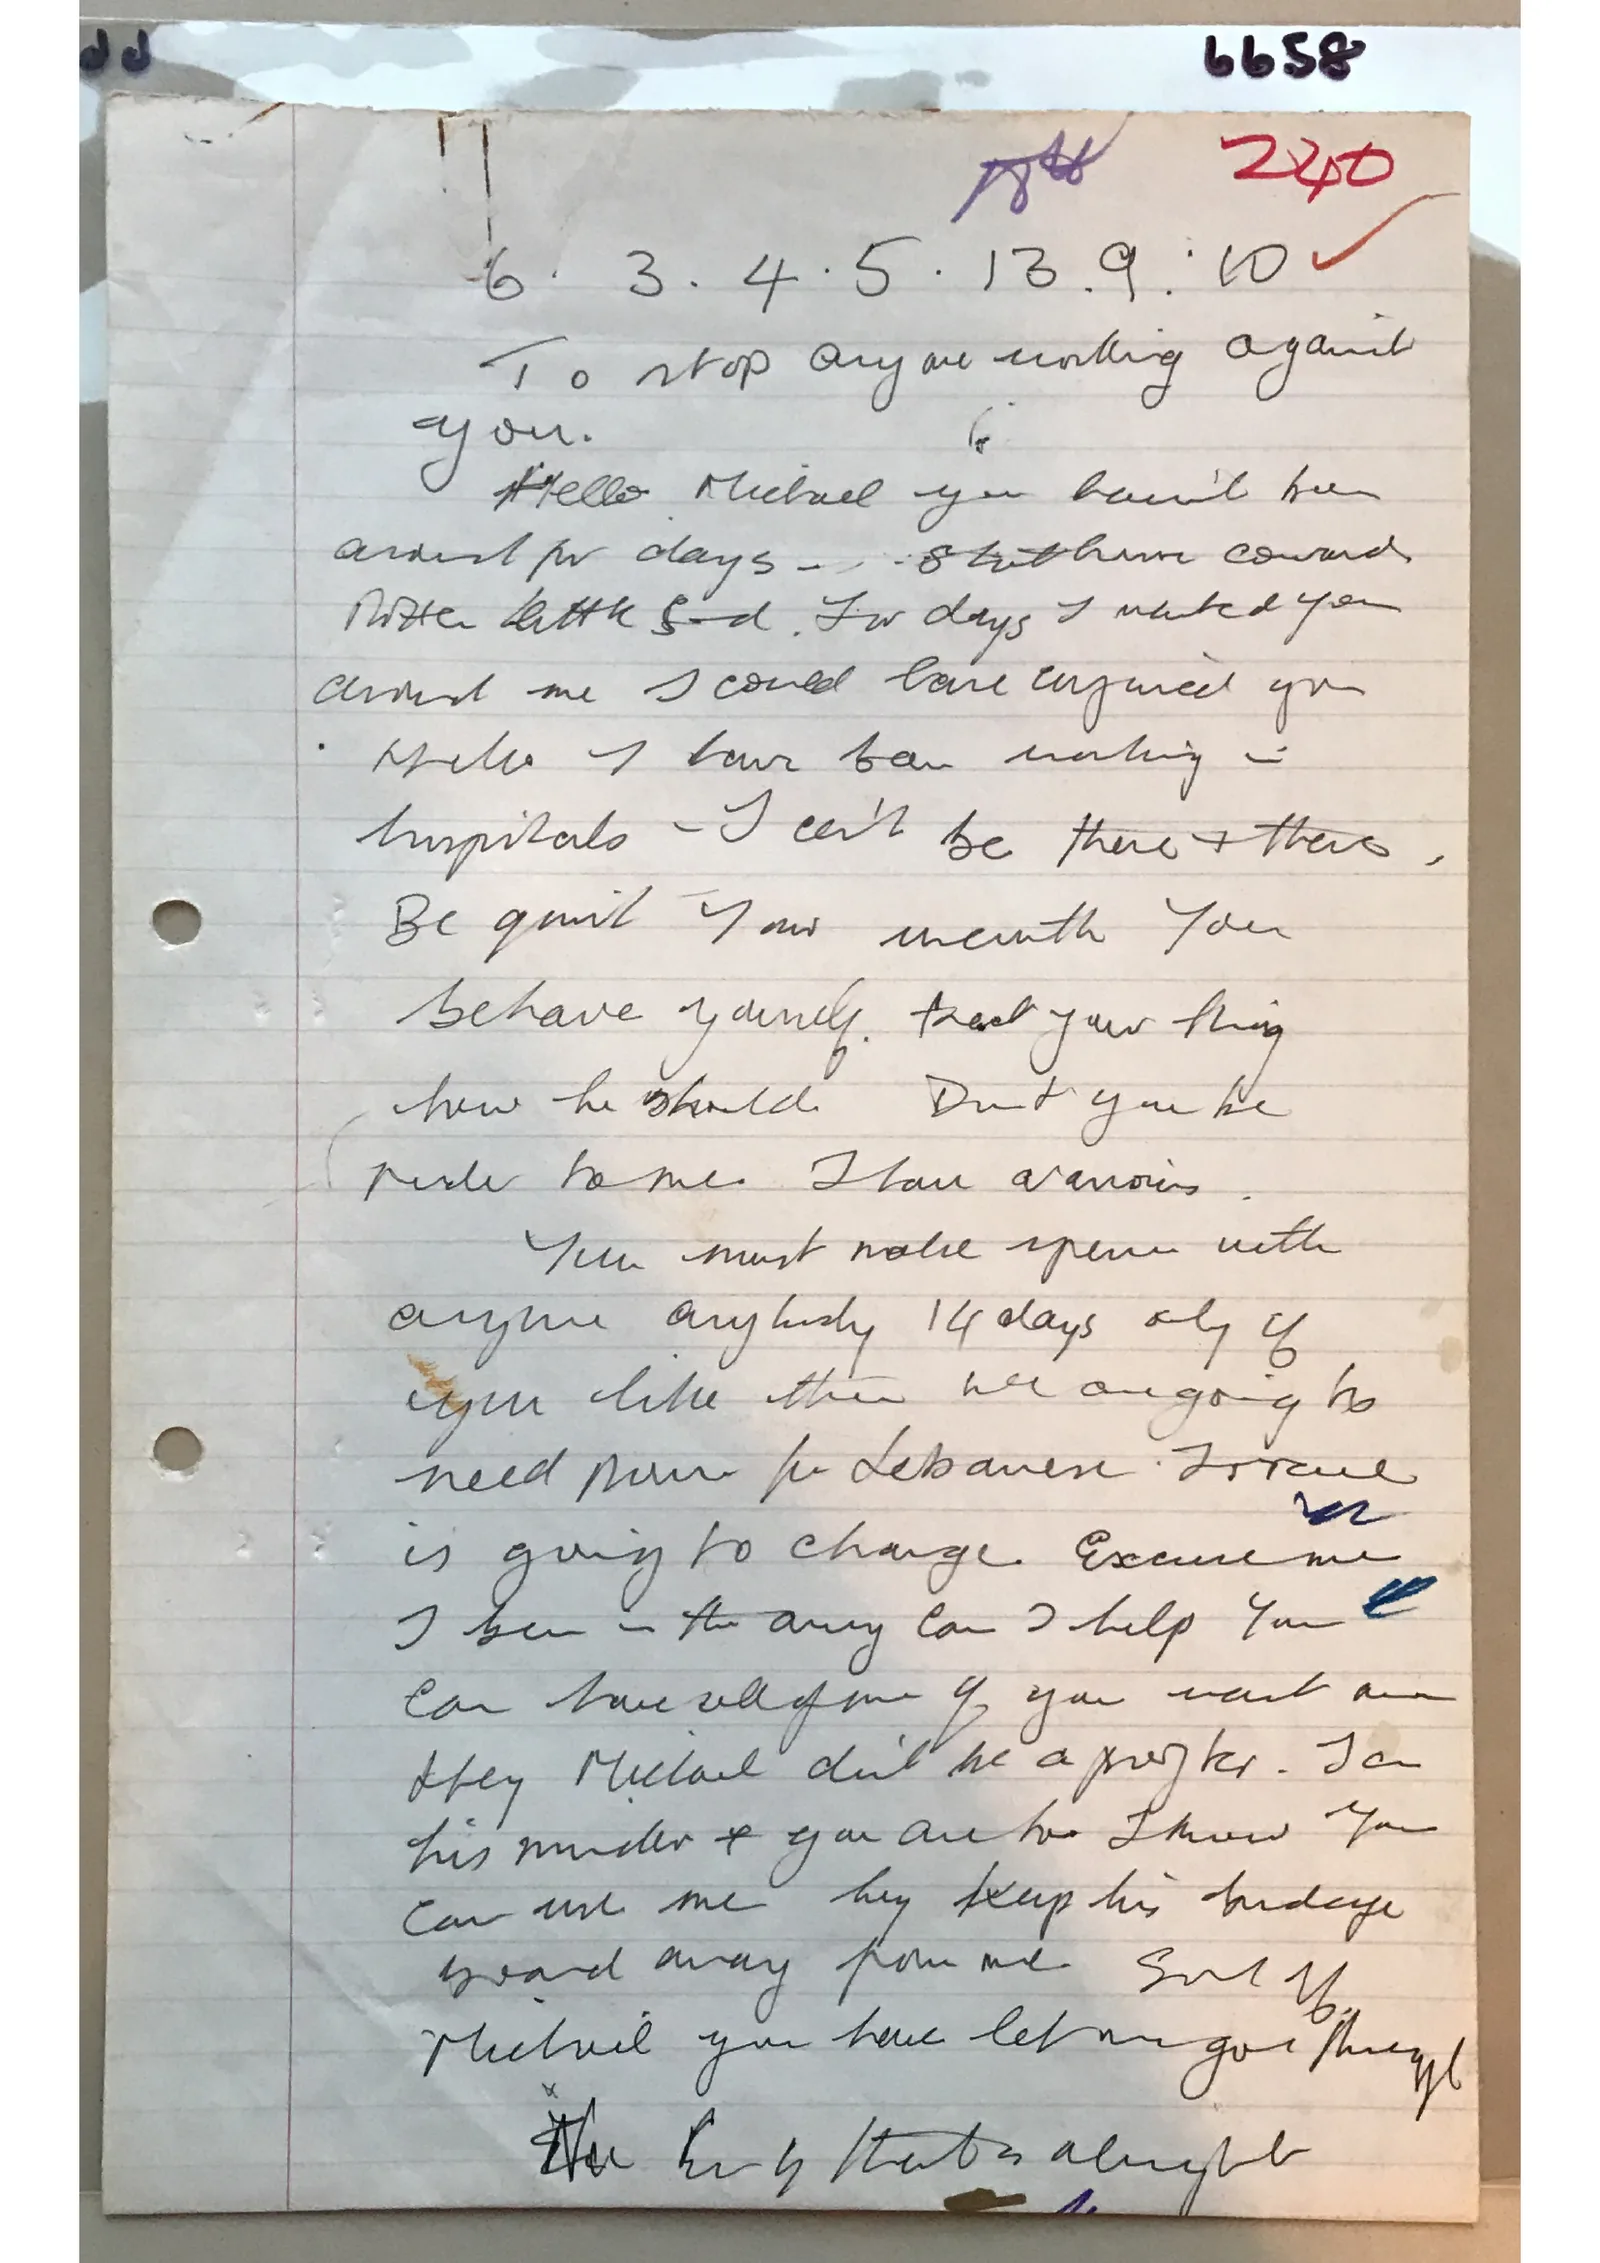 dd 6658
240
6. 3. 4. 5. 13. 9. 10 ✓
To stop anyone working against
you.
Hello Michael you haven't been
around for days coward
Rotten little S-d. For days I wanted you
around me I could have injured you
Hello I have been working in
hospitals - I can't be there + there,
Be quiet Your mouth You
behave yourself. treat your thing
how he should Don't you be
rude to me. I have
You must make sperm with
anyone anybody 14 days only if
you like then we are going to
need more for Lebanese. Israel
is going to change. Excuse me
I been in the army Can I help You
Can have all of me if you want me
Hey Michael don't be a . I am
his minder + you are too I know You
can use me hey keep his bandage
away from me. Sort of
Michael you have let me go through
that is alright